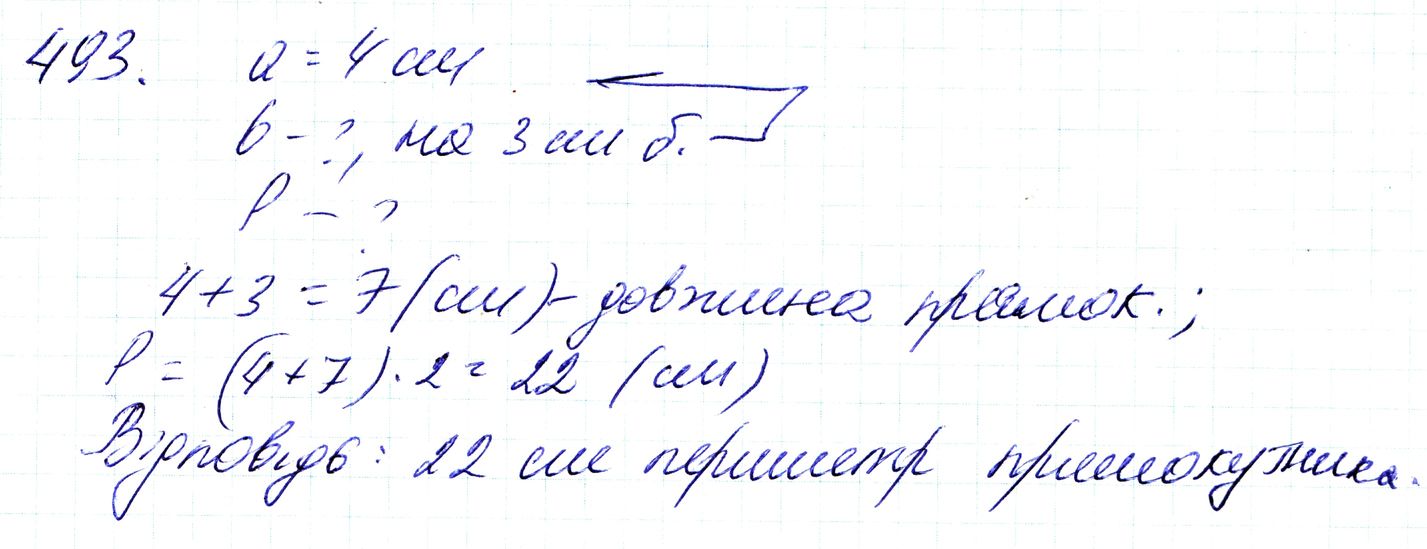 493. a = 4 см
b - ?, на 3 см б.
P - ?
4 + 3 = 7 (см) - довжина прямок.;
P = (4 + 7) · 2 = 22 (см)
Відповідь: 22 см периметр прямокутника.